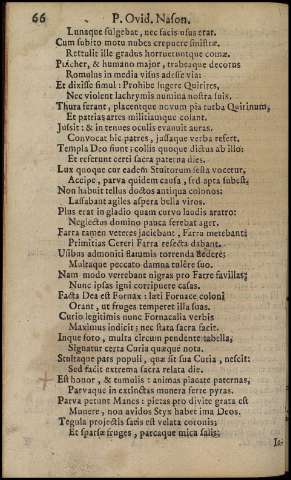 66 P. Ovid. Nason.
Lunaque fulgebat, nec facis usus erat.
Cum subito motu nubes crepuere sinistræ.
Rettulit ille gradus horrueruntque comæ.
Pulcher, & humano major, trabeaque decorus
Romulus in media visus adesse via:
Et dixisse simul: Prohibe lugere Quirites,
Nec violent lachrymis numina nostra suis.
Thura ferant, placentque novum pia turba Quirinum,
Et patrias artes militiamque colant.
Jussit: & in tenues oculis evanuit auras.
Convocat hic patres, jussaque verba refert.
Templa Deo fiunt: collis quoque dictus ab illo:
Et referunt certi sacra paterna dies.
Lux quoque cur eadem Stultorum festa vocetur,
Accipe, parva quidem causa, sed apta subest.
Non habuit tellus doctos antiqua colonos:
Lassabant agiles aspera bella viros.
Plus erat in gladio quam curvo laudis aratro:
Neglectus domino pauca ferebat ager.
Farra tamen veteres jaciebant, Farra metebant:
Primitias Cereri Farra resecta dabant.
Usibus admoniti flammis torrenda dedere:
Multaque peccato damna tulere suo.
Nam modo verrebant nigras pro Farre favillas;
Nunc ipsas igni corripuere casas.
Facta Dea est Fornax: læti Fornace coloni
Orant, ut fruges temperet illa suas.
Curio legitimis nunc Fornacalia verbis
Maximus indicit; nec stata sacra facit.
Inque foro, multa circum pendente tabella,
Signatur certa Curia quæque nota.
Stultaque pars populi, quæ sit sua Curia, nescit:
Sed facit extrema sacra relata die.
Est honor, & tumulis: animas placate paternas,
Parvaque in extinctas munera ferre pyras.
Parva petunt Manes: pietas pro divite grata est
Munere, non avidos Styx habet ima Deos.
Tegula projectis satis est velata coronis;
Et sparsæ fruges, parcaque mica salis: